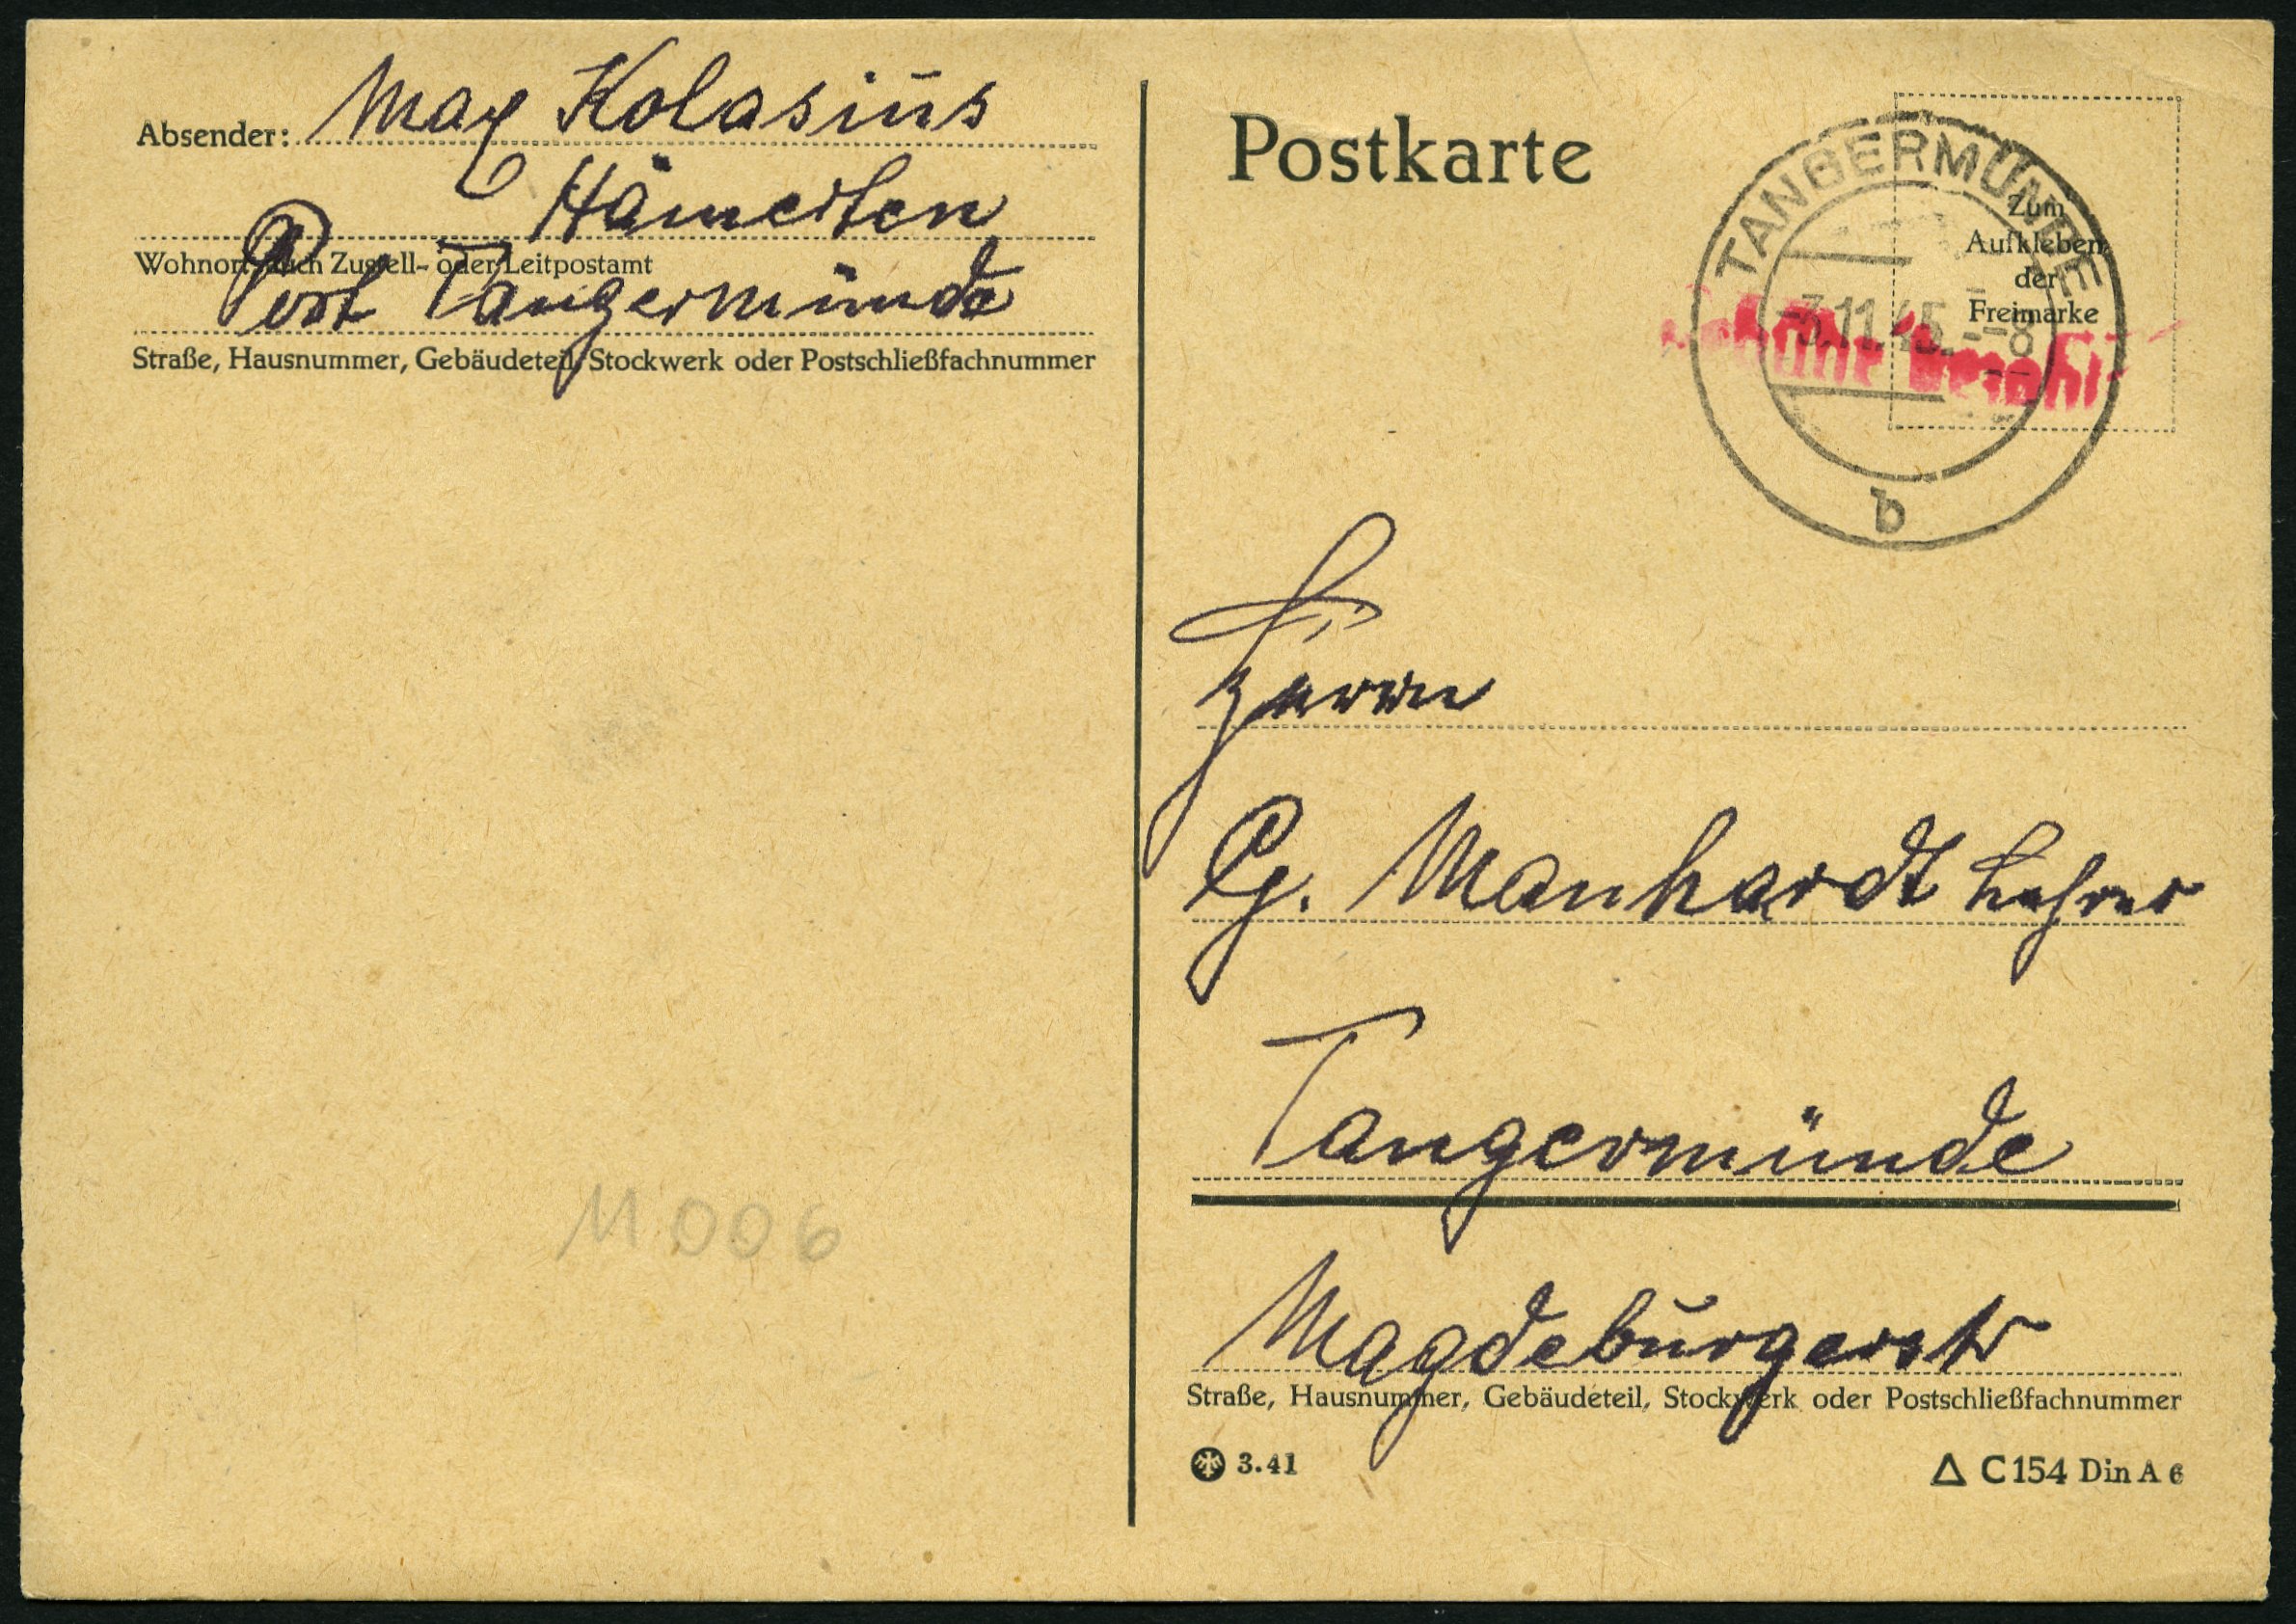 Absender: Max Kolasius
Hämerten
Wohnort, auch Zustell- oder Leitpostamt
Post Tangermünde
Straße, Hausnummer, Gebäudeteil, Stockwerk oder Postschließfachnummer
M 006
Postkarte
TANGERMÜNDE
-3.11.45.--8
b
Zum
Aufkleben
der
Freimarke
Gebühr bezahlt
Herrn
G. Manhardt Lehrer
Tangermünde
Magdeburgerstr
Straße, Hausnummer, Gebäudeteil, Stockwerk oder Postschließfachnummer
3.41
Δ C 154 Din A 6